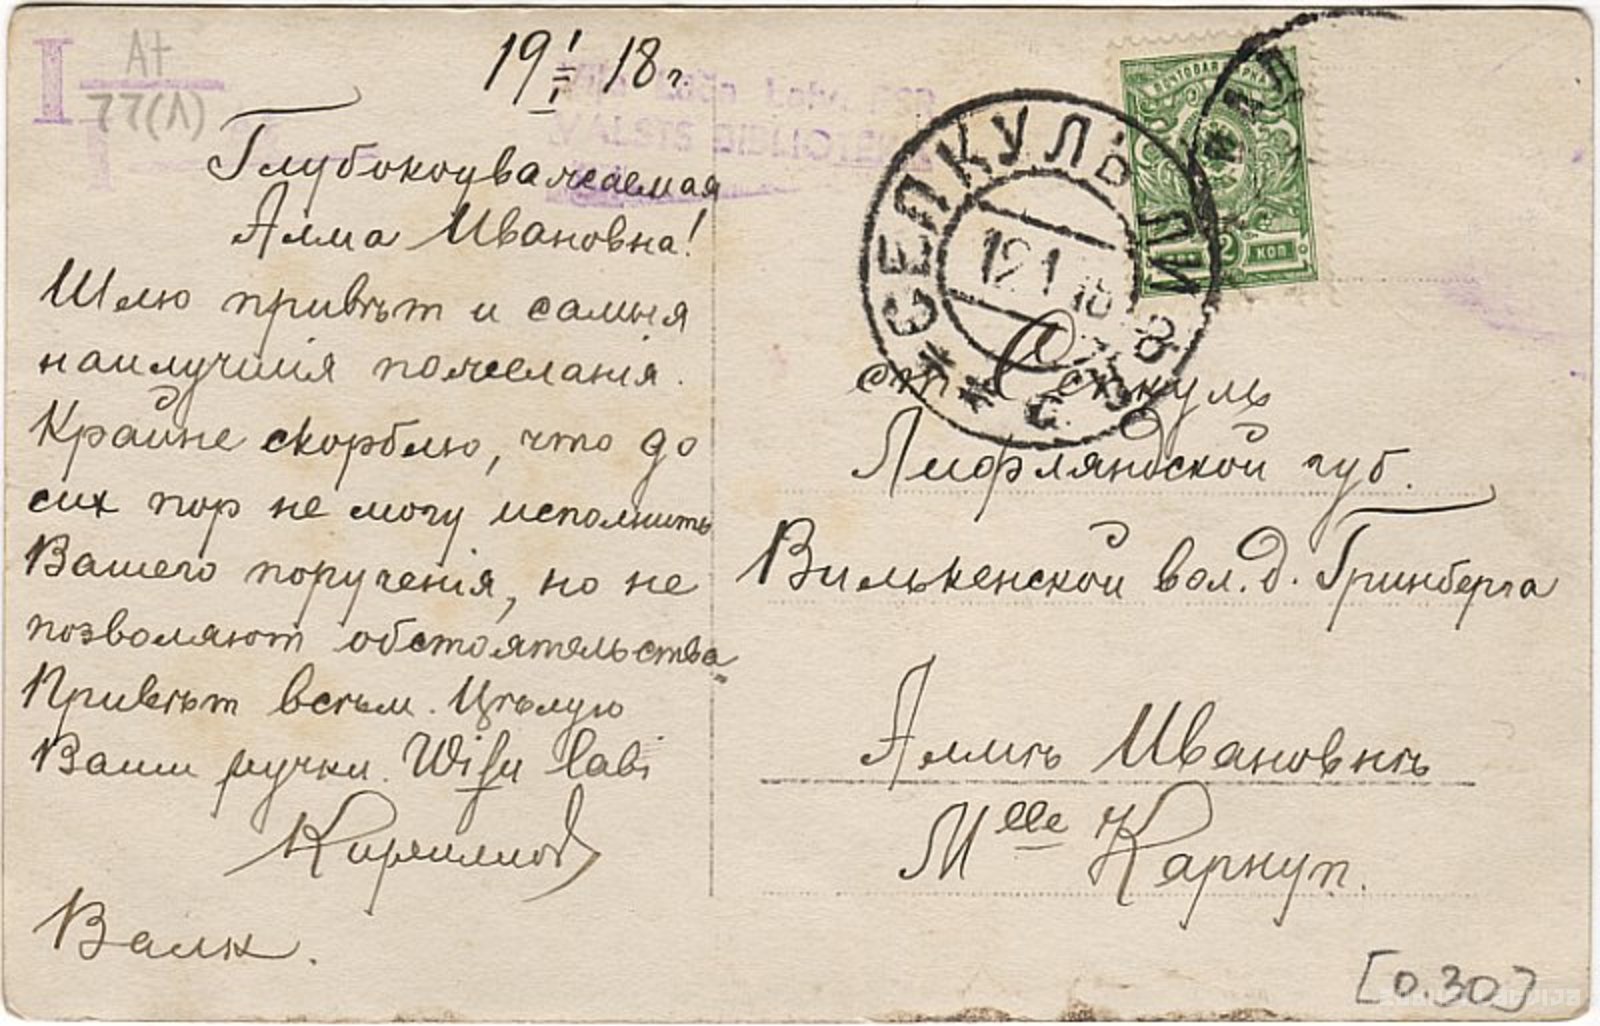 19 I/1 18 г.
Глубокоуважаемая
Алма Ивановна!
Шлю привѣт и самыя
наилучшія пожеланія.
Крайне скорблю, что до
сих пор не могу исполнить
Вашего порученія, но не
позволяют обстоятельства
Привѣт всѣм. Цѣлую
Ваши ручки. Wisu labi
Кириллов
Валк.
At
77(Л)
VALSTS BIBLIOTEKA
СЕПКУЛЬ
12 1 18
ПОЧТОВАЯ МАРКА
2 КОП
ст. Сепкуль
Лифляндской губ.
Вилькенской вол. д. Гринберга
Алмѣ Ивановнѣ
Mlle Карнуп.
[0.30]